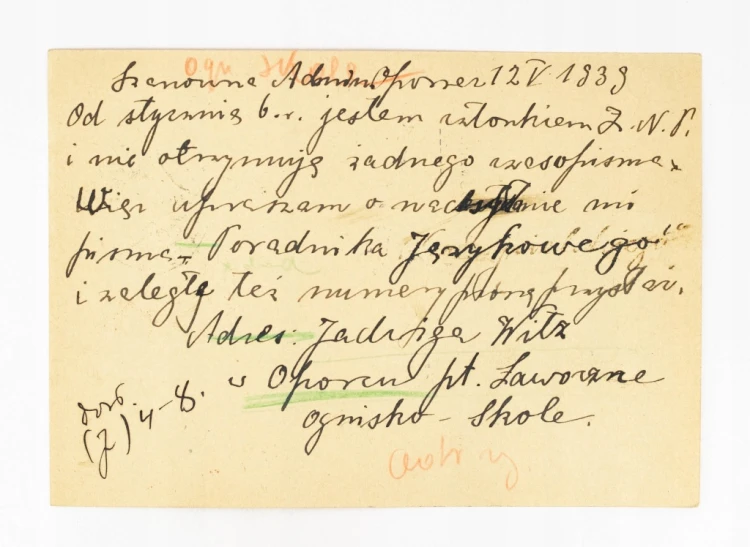 Ogn. Skole
Szanowna Admin. Oporzec 12 V 1939
Od stycznia b.r. jestem członkiem Z. N. P.
i nie otrzymują żadnego czasopisma.
Więc upraszam o nadsyłanie mi
pisma „Poradnika Językowego"
i zaległe też numery proszę przysłać.
Adres: Jadwiga Wilz
w Oporcu pt. Ławoczne
Ognisko - Skole.
(J) 4-8.